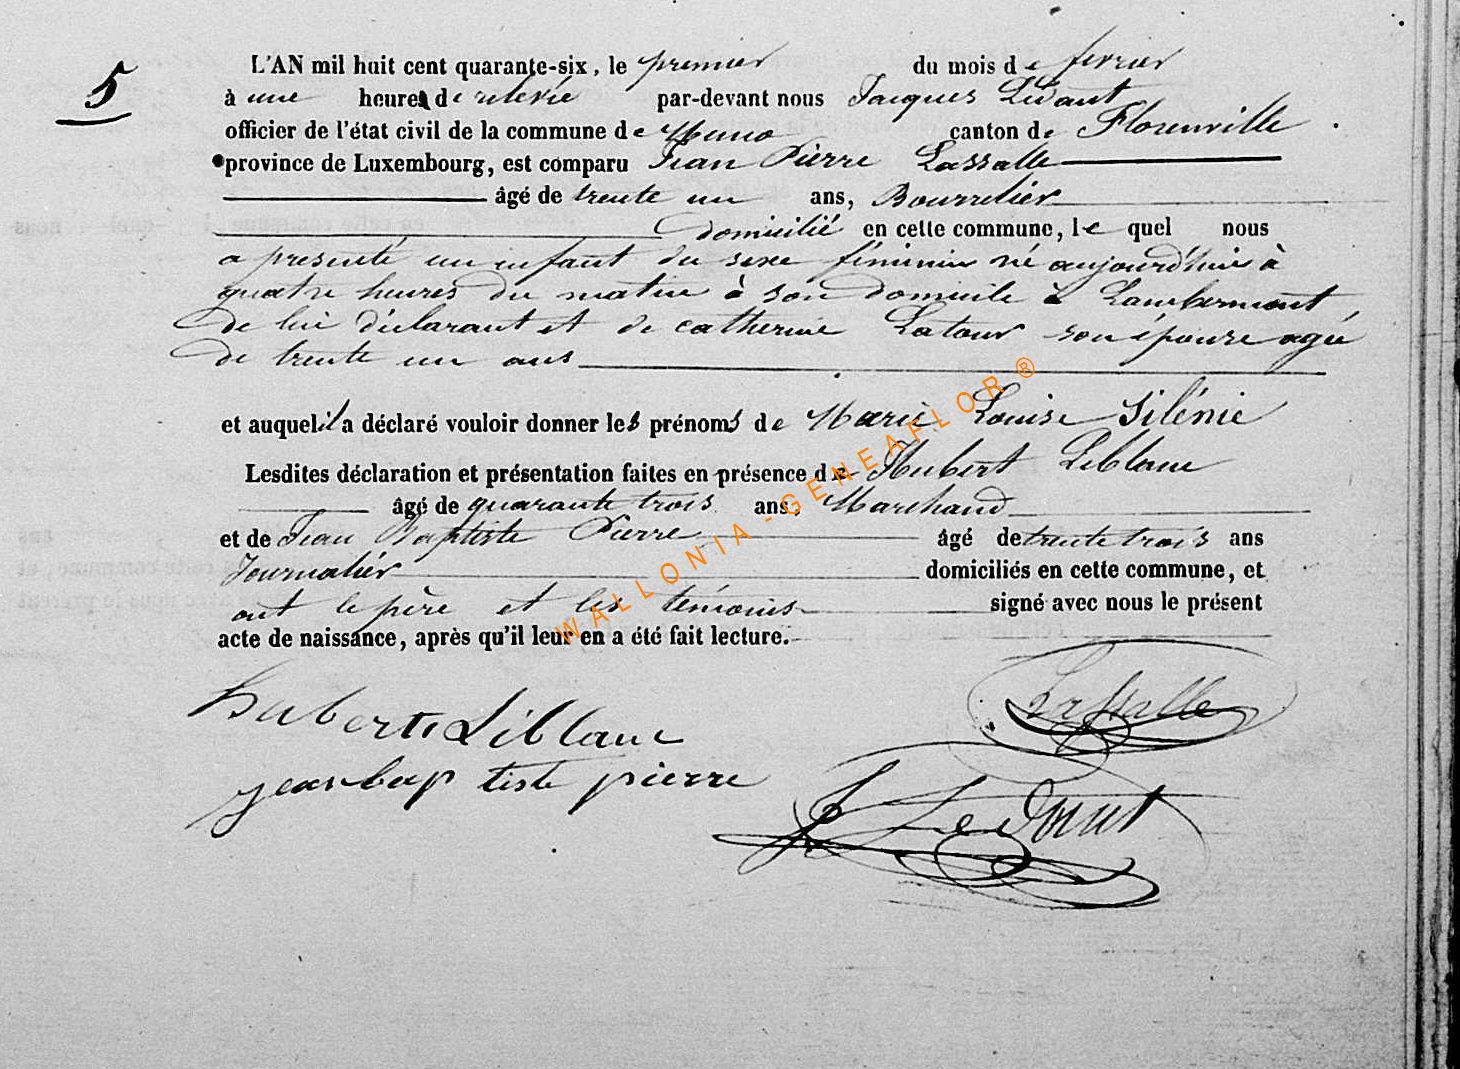 5
L'AN mil huit cent quarante-six, le premier du mois de fevrier
à une heure de relevée par-devant nous Jacques Ledant
officier de l'état civil de la commune de Muno canton de Florenville.
province de Luxembourg, est comparu Jean Pierre Lassalle
âgé de trente un ans, Bourrelier
Domicilié en cette commune, le quel nous
a presenté un enfant du sexe féminin né aujourd'hui à
quatre heures du matin à son domicile à Lambermont
de lui déclarant et de catherine Latour son épouse agée
de trente un ans
et auquel il a déclaré vouloir donner les prénoms de Marie Louise Silénie
Lesdites déclaration et présentation faites en présence de Hubert Leblanc
âgé de quarante trois ans, Marchand
et de Jean Baptiste Pierre âgé de trente trois ans
Journalier domiciliés en cette commune, et
ont le père et les témoins signé avec nous le présent
acte de naissance, après qu'il leur en a été fait lecture.
WALLONIA-GENEAFLOR®
Lassalle
hubert Leblanc
jean bap tiste pierre
J Ledant